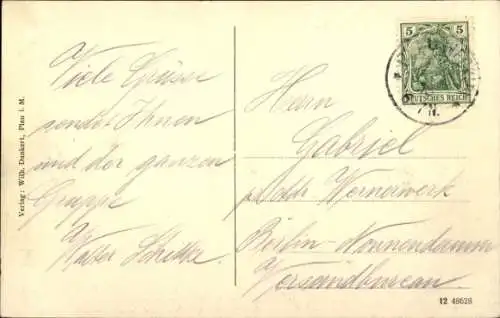 Viele Grüsse
sendet Ihnen
und der ganzen
Gruppe
Walter
Herrn
Gabriel
Wernerwerk
Berlin-Nonnendamm
Versandbureau.
5 5
DEUTSCHES REICH
Verlag: Wilh. Dankert, Plau i. M.
12 48628